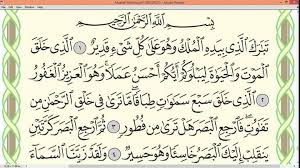 بِسْمِ اللَّهِ الرَّحْمَٰنِ الرَّحِيمِ
تَبَٰرَكَ ٱلَّذِي بِيَدِهِ ٱلْمُلْكُ وَهُوَ عَلَىٰ كُلِّ شَيْءٍ قَدِيرٌ ١ ٱلَّذِي خَلَقَ
ٱلْمَوْتَ وَٱلْحَيَوٰةَ لِيَبْلُوَكُمْ أَيُّكُمْ أَحْسَنُ عَمَلًا وَهُوَ ٱلْعَزِيزُ ٱلْغَفُورُ
٢ ٱلَّذِي خَلَقَ سَبْعَ سَمَٰوَٰتٍ طِبَاقًا مَّا تَرَىٰ فِي خَلْقِ ٱلرَّحْمَٰنِ مِن
تَفَٰوُتٍ فَٱرْجِعِ ٱلْبَصَرَ هَلْ تَرَىٰ مِن فُطُورٍ ٣ ثُمَّ ٱرْجِعِ ٱلْبَصَرَ كَرَّتَيْنِ
يَنقَلِبْ إِلَيْكَ ٱلْبَصَرُ خَاسِئًا وَهُوَ حَسِيرٌ ٤ وَلَقَدْ زَيَّنَّا ٱلسَّمَآءَ